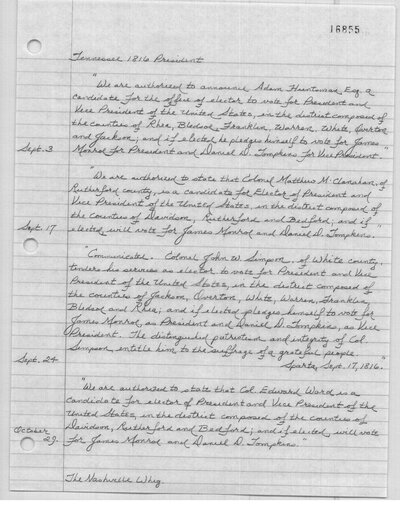 16855
Tennessee 1816 President
"We are authorized to announce Adam Huntsman, Esq. a
candidate for the office of elector to vote for President and
Vice President of the United States, in the district composed of
the counties of Rhea, Bledsoe, Franklin, Warren, White, Overton
and Jackson; and if elected he pledges himself to vote for James
Sept. 3 Monroe for President and Daniel D. Tompkins for Vice President."
We are authorized to state that Colonel Matthew McClanahan, of
Rutherford county, is a candidate for Elector of President and
Vice President of the United States, in the district composed of
the counties of Davidson, Rutherford and Bedford; and if
Sept. 17 elected, will vote for James Monroe and Daniel D. Tompkins."
"Communicated. Colonel John W. Simpson, of White county,
tenders his services as elector to vote for President and Vice
President of the United States, in the district composed of
the counties of Jackson, Overton, White, Warren, Franklin,
Bledsoe and Rhea; and if elected pledges himself to vote for
James Monroe, as President and Daniel D. Tompkins, as Vice
President. The distinguished patriotism and integrity of Col.
Simpson entitle him to the suffrage of a grateful people.
Sept. 24 Sparta, Sept. 17, 1816."
"We are authorized to state that Col. Edward Ward is a
candidate for elector of President and Vice President of the
United States, in the district composed of the counties of
Davidson, Rutherford and Bedford; and if elected, will vote
October 29. for James Monroe and Daniel D. Tompkins."
The Nashville Whig.